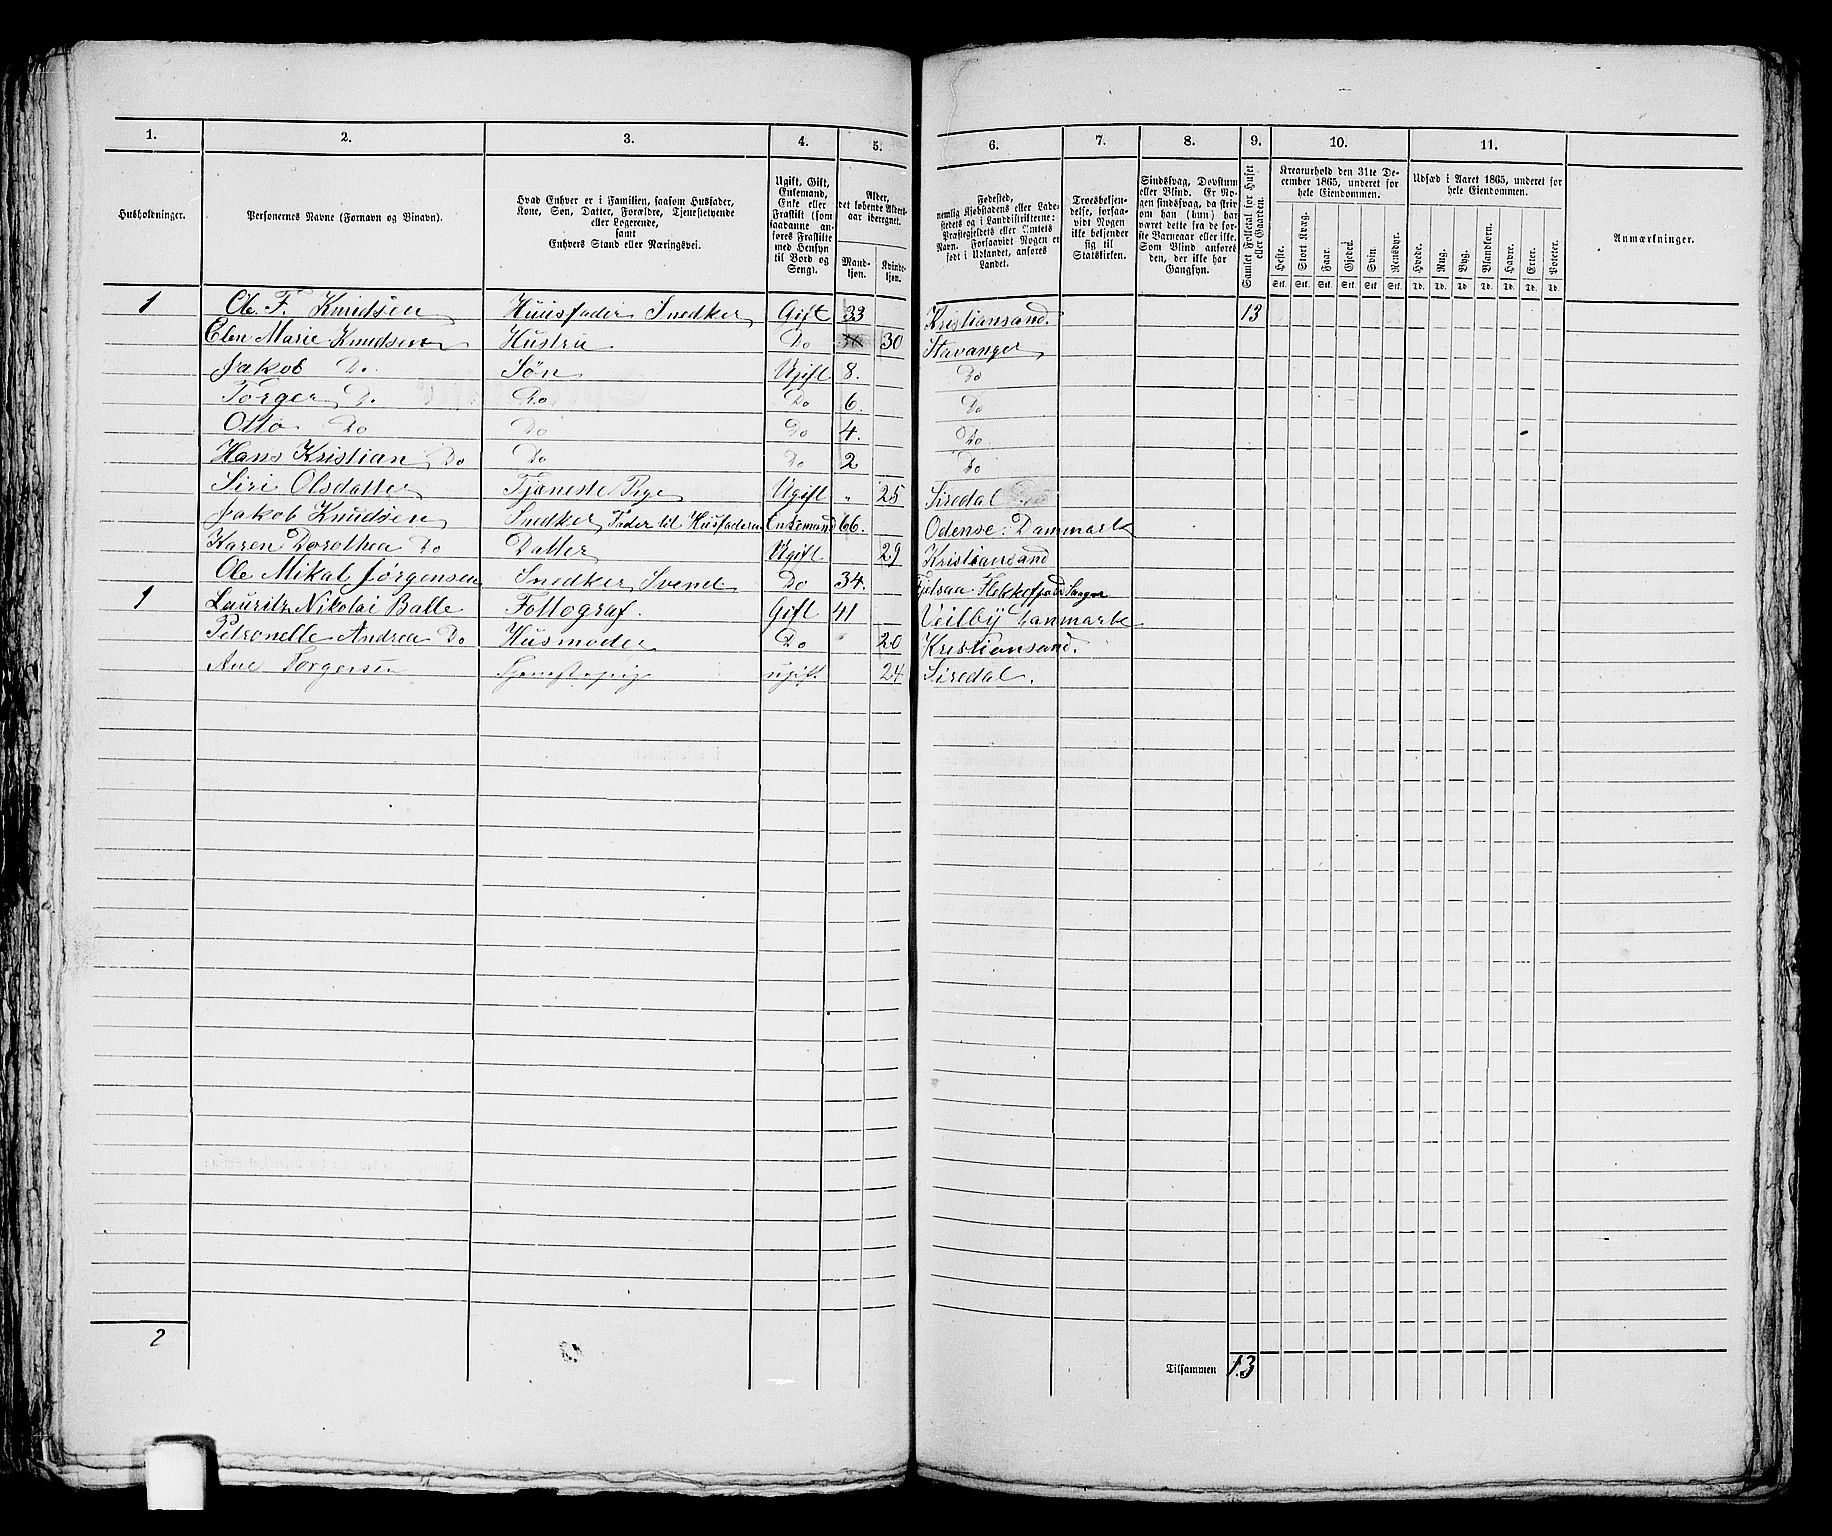 1. 2. 3. 4. 5. 6. 7. 8. 9. 10. 11.
Husholdninger.
Personernes Navne (Fornavn og Binavn).
Hvad Enhver er i Familien, saasom Husfader,
Kone, Søn, Datter, Forældre, Tjenestetyende
eller Logerende,
samt
Enhvers Stand eller Næringsvei.
Ugift, Gift,
Enkemand,
Enke eller
Fraskilt (som
saadanne an-
føres Fraskilte
med Hensyn
til Bord og
Seng).
Alder,
det løbende Alders-
aar iberegnet.
Mand-
kjøn.
Kvinde-
kjøn.
Fødested,
nemlig Kjøbstadens eller Lade-
stedets og i Landdistrikterne:
Præstegjeldets eller Amtets
Navn. Forsaavidt Nogen er
født i Udlandet, anføres
Landet.
Troesbekjen-
delse, forsaa-
vidt Nogen
ikke bekjender
sig til
Statskirken.
Sindssvag, Døvstum
eller Blind. Er No-
gen sindssvag, da skriv
om han (hun) har
været dette fra de før-
ste Barneaar eller ikke.
Som Blind anføres
den, der ikke har
Gangsyn.
Samlet Folketal for Huset
eller Gaarden.
Kreaturhold den 31te De-
cember 1865, underet for
hele Eiendommen.
Heste. Stort Kvæg. Faar. Gjeder. Svin. Rensdyr.
Stk. Stk. Stk. Stk. Stk. Stk.
Udsæd i Aaret 1865, underet for
hele Eiendommen.
Hvede. Rug. Byg. Blandkorn. Havre. Erter. Poteter.
Td. Td. Td. Td. Td. Td. Td.
Anmærkninger.
1 Ole F. Knudsen Huusfader Snedker Gift 33 Kristiansand. 13
Elen Marie Knudsen Hustru Do 30 Stavanger
Jakob Do Søn Ugift 8. Do
Torger D. Do Do 6. Do
Otto Do Do Do 4. Do
Hans Kristian Do Do Do 2 Do
Siri Olsdatter Tjæneste Pige Ugift " 25 Siredal
Jakob Knudsen Snedker Fader til Husfaderen Enkemand 66. Odense: Danmark
Karen Dorothea Do Datter Ugift 29 Kristiansand
Ole Mikal Jørgensen Snedker Svend Do 34. Flekkefjord
1 Lauritz Nikolai Balle Fottograf. Gift 41 Veilby Danmark
Petronelle Andrea Do Husmoder Do 20 Kristiansand.
Ane Torgersen Tjenestepig ugift 24 Siredal.
2
Tilsammen 13